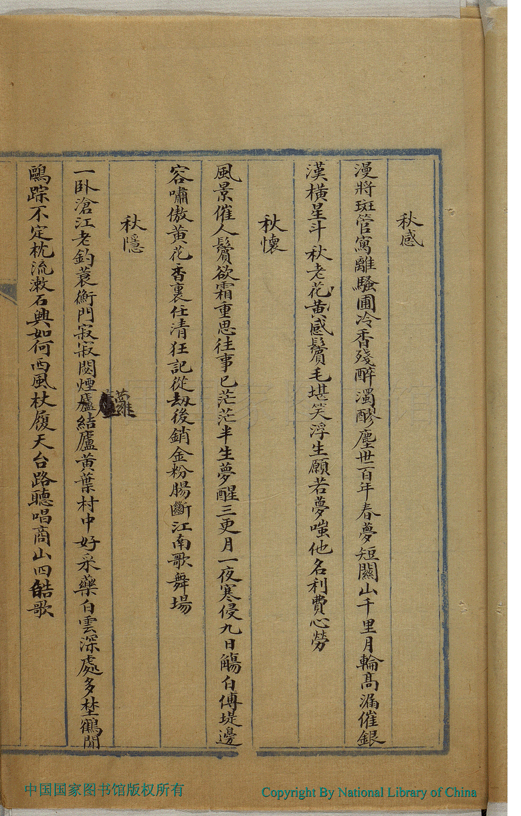 秋感
漫將斑管寓離騷圃冷香殘醉濁醪塵世百年春夢短關山千里月輪高漏催銀
漢橫星斗秋老花黃感鬢毛堪笑浮生願若夢嗤他名利費心勞
秋懷
風景催人鬢欲霜重思往事已茫茫半生夢醒三更月一夜寒侵九日觴白傅堤邊
容嘯傲黃花香裏任清狂記從劫後銷金粉腸斷江南歌舞場
秋隱
一卧滄江老釣蓑衡門寂寂閟煙蘿結廬黃葉村中好采藥白雲深處多埜鶴閒
鷗踪不定枕流漱石興如何西風杖履天台路聽唱商山四皓歌
中国国家图书馆版权所有
Copyright By National Library of China